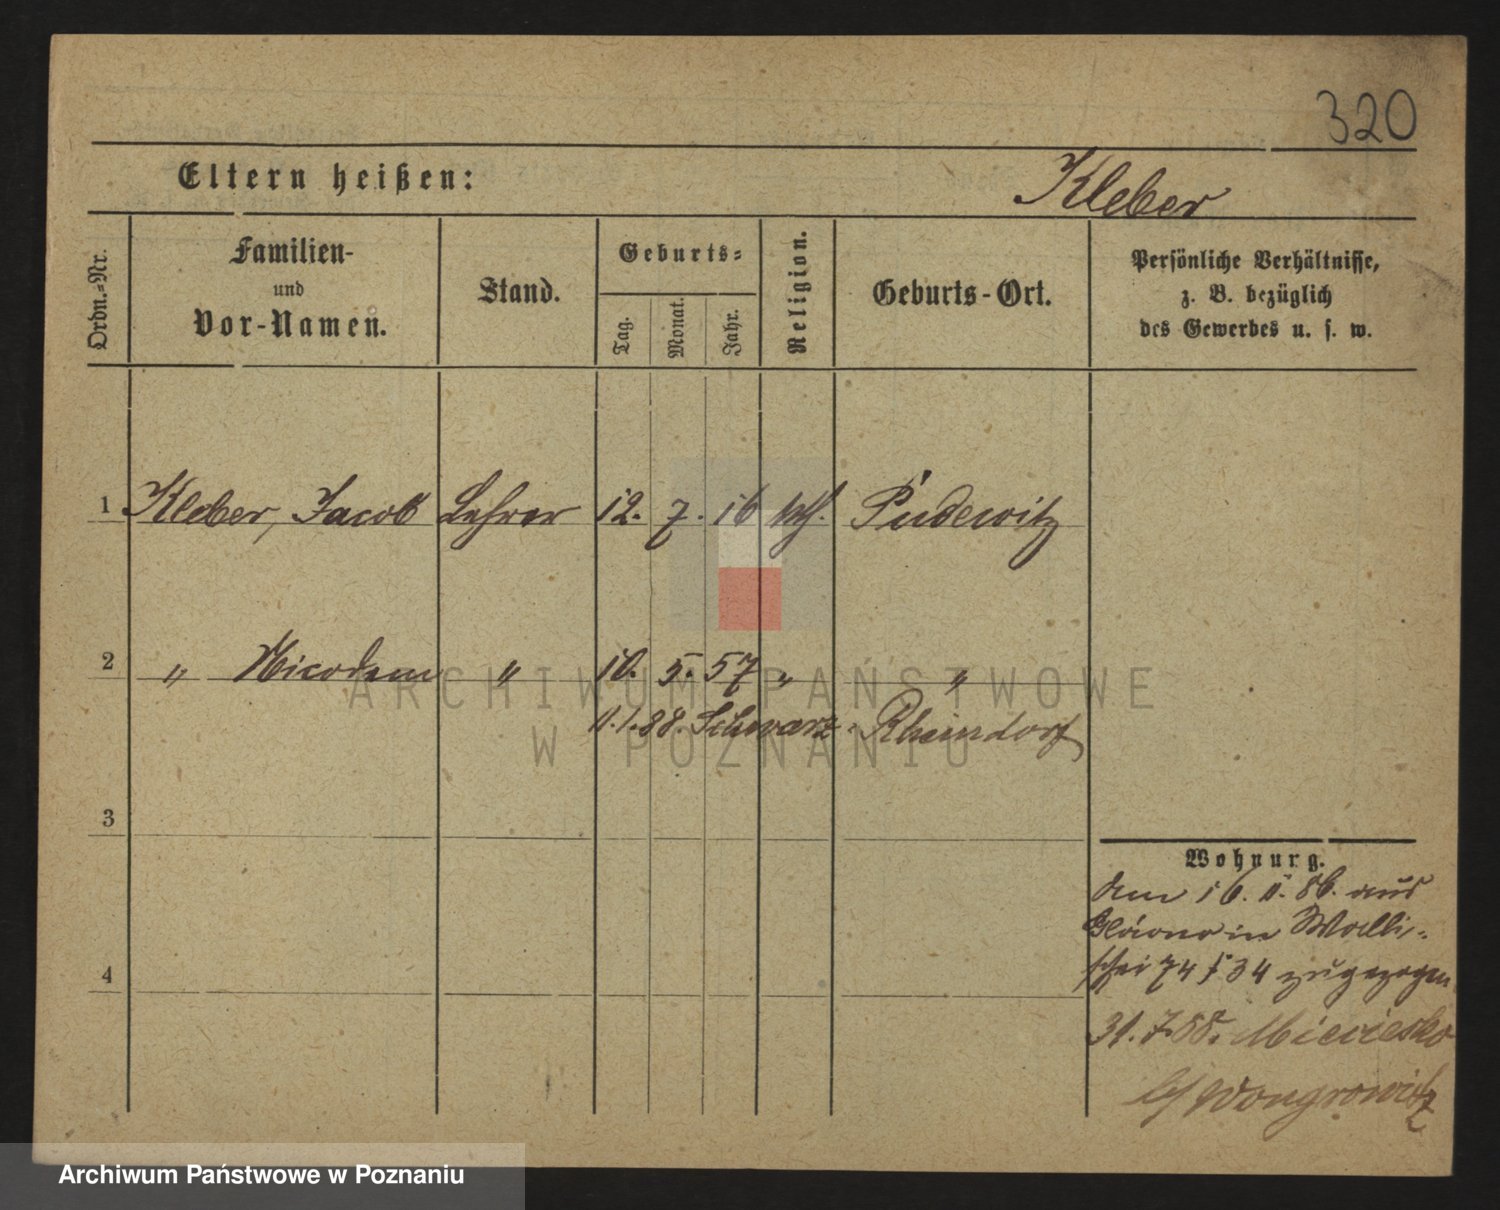 320
Eltern heißen:
Kleber
Ordn.=Nr.
Familien-
und
Vor-Namen.
Stand.
Geburts=
Tag.
Monat.
Jahr.
Religion.
Geburts-Ort.
Persönliche Verhältnisse,
z. B. bezüglich
des Gewerbes u. s. w.
1 Kleber, Jacob Lehrer 12. 7. 16 kth. Pudewitz
2 " Nicodem " 10. 5. 57 " "
11.1.88. Schwarz Rheindorf
3
Wohnung.
4
am 16. 11. 86. aus
in Walli-
schei 74/34 zugezogen
31. 7. 88. Miecisko
b/ Wongrowitz
ARCHIWUM PAŃSTWOWE
W POZNANIU
Archiwum Państwowe w Poznaniu